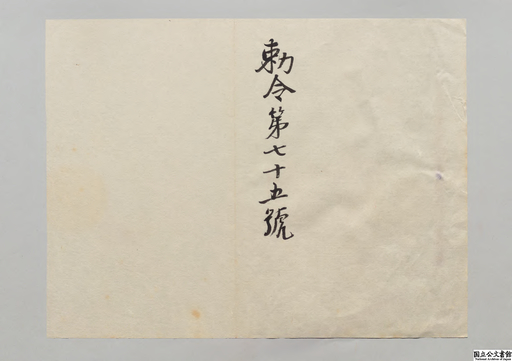 勅令第七十五號
国立公文書館
National Archives of Japan